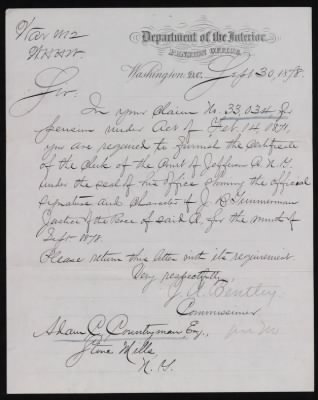 War 1812
Department of the Interior,
PENSION OFFICE,
Washington, D.C. Sept 30, 1878.
Sir:
In your Claim No. 33,034 for
pension under Act of Feb. 14, 1871,
you are required to furnish the Certificate
of the Clerk of the Court of Jefferson Co. N.Y.
under the seal of his office showing the official
signature and character of J. B. Timmerman
Justice of the Peace of said Co. for the month of
Sept 1878.
Please return this letter with its requirement.
Very respectfully,
J. A. Bentley
Commissioner
Adam C. Countryman Esq.,
Stone Mills,
N. Y.